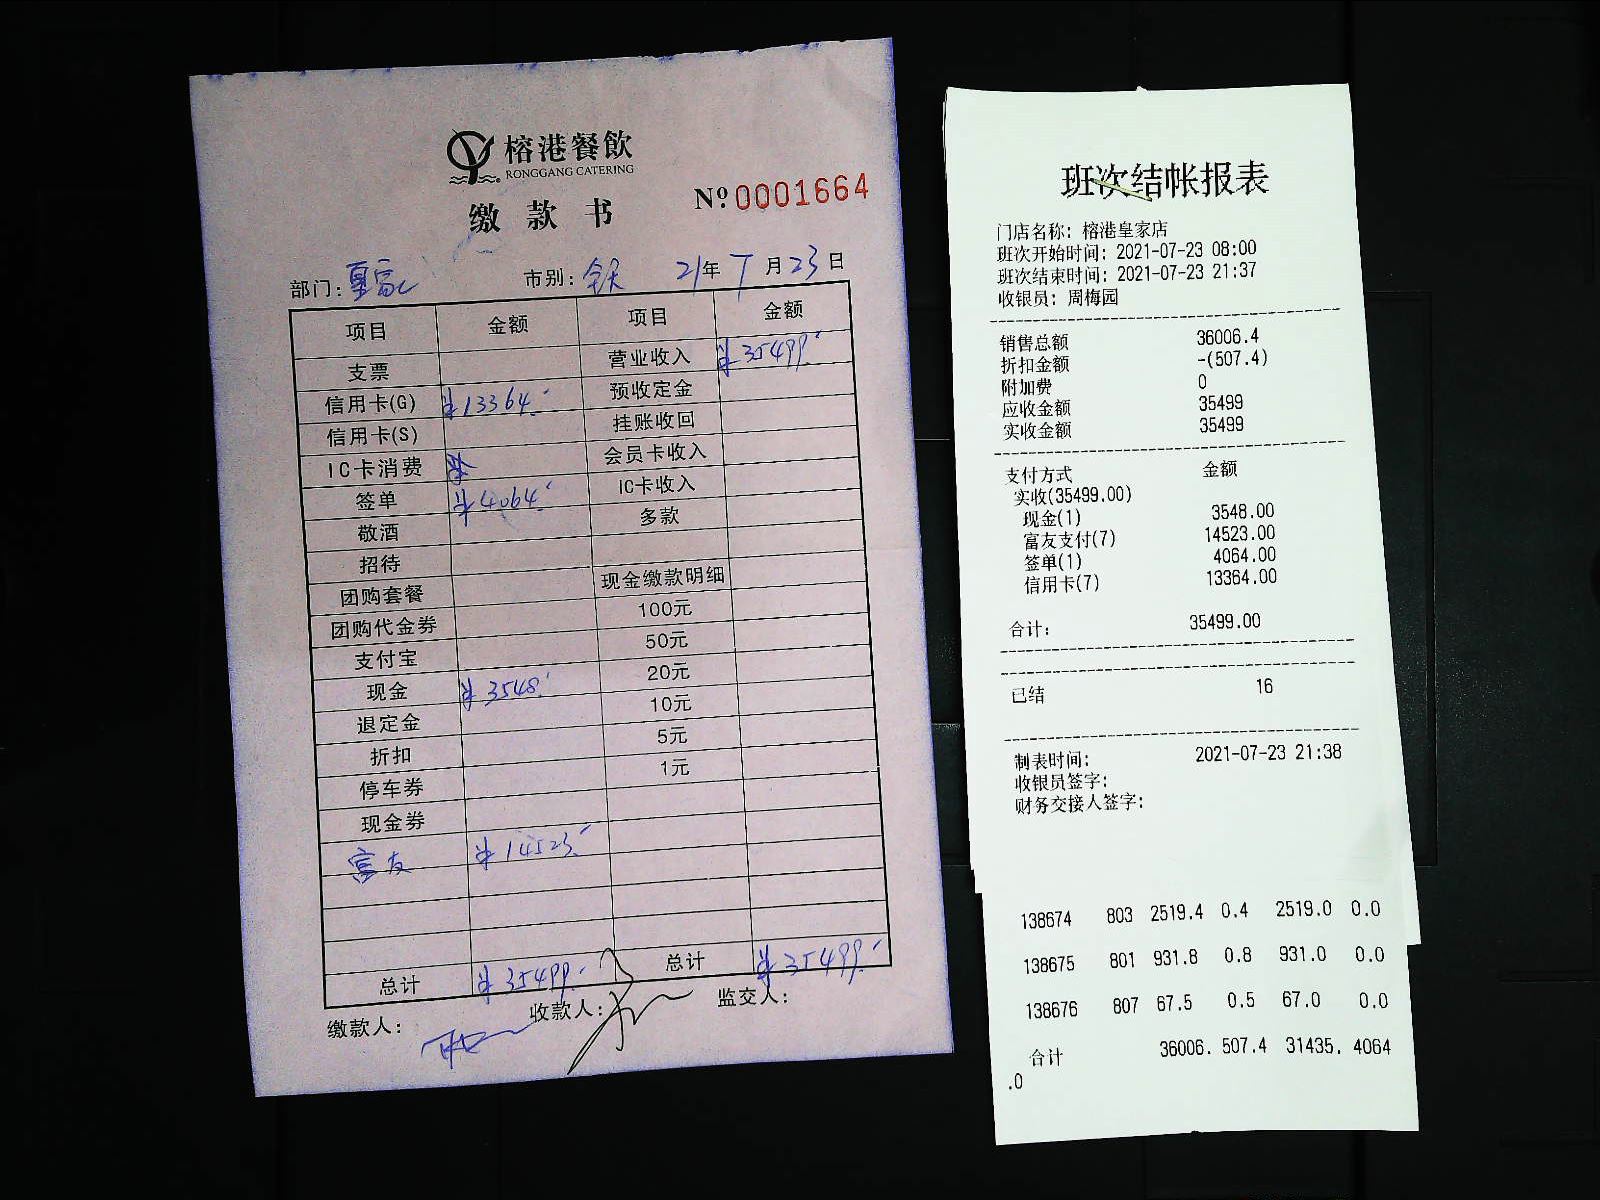 榕港餐飲
RONGGANG CATERING
缴款书
Nº 0001664
部门: 市别: 全天 21年 7月 23日
项目 金额 项目 金额
支票 营业收入 ¥35499.-
信用卡(G) ¥13364.- 预收定金
信用卡(S) 挂账收回
IC卡消费 会员卡收入
签单 ¥4064.- IC卡收入
敬酒 多款
招待
团购套餐 现金缴款明细
团购代金券 100元
支付宝 50元
现金 ¥3548.- 20元
退定金 10元
折扣 5元
停车券 1元
现金券
富友 ¥14523.-
总计 ¥35499.- 总计 ¥35499.-
缴款人: 收款人: 监交人:
班次结帐报表
门店名称: 榕港皇家店
班次开始时间: 2021-07-23 08:00
班次结束时间: 2021-07-23 21:37
收银员: 周梅园
销售总额 36006.4
折扣金额 -(507.4)
附加费 0
应收金额 35499
实收金额 35499
支付方式 金额
实收(35499.00)
现金(1) 3548.00
富友支付(7) 14523.00
签单(1) 4064.00
信用卡(7) 13364.00
合计: 35499.00
已结 16
制表时间: 2021-07-23 21:38
收银员签字:
财务交接人签字:
138674 803 2519.4 0.4 2519.0 0.0
138675 801 931.8 0.8 931.0 0.0
138676 807 67.5 0.5 67.0 0.0
合计 36006. 507.4 31435. 4064
.0